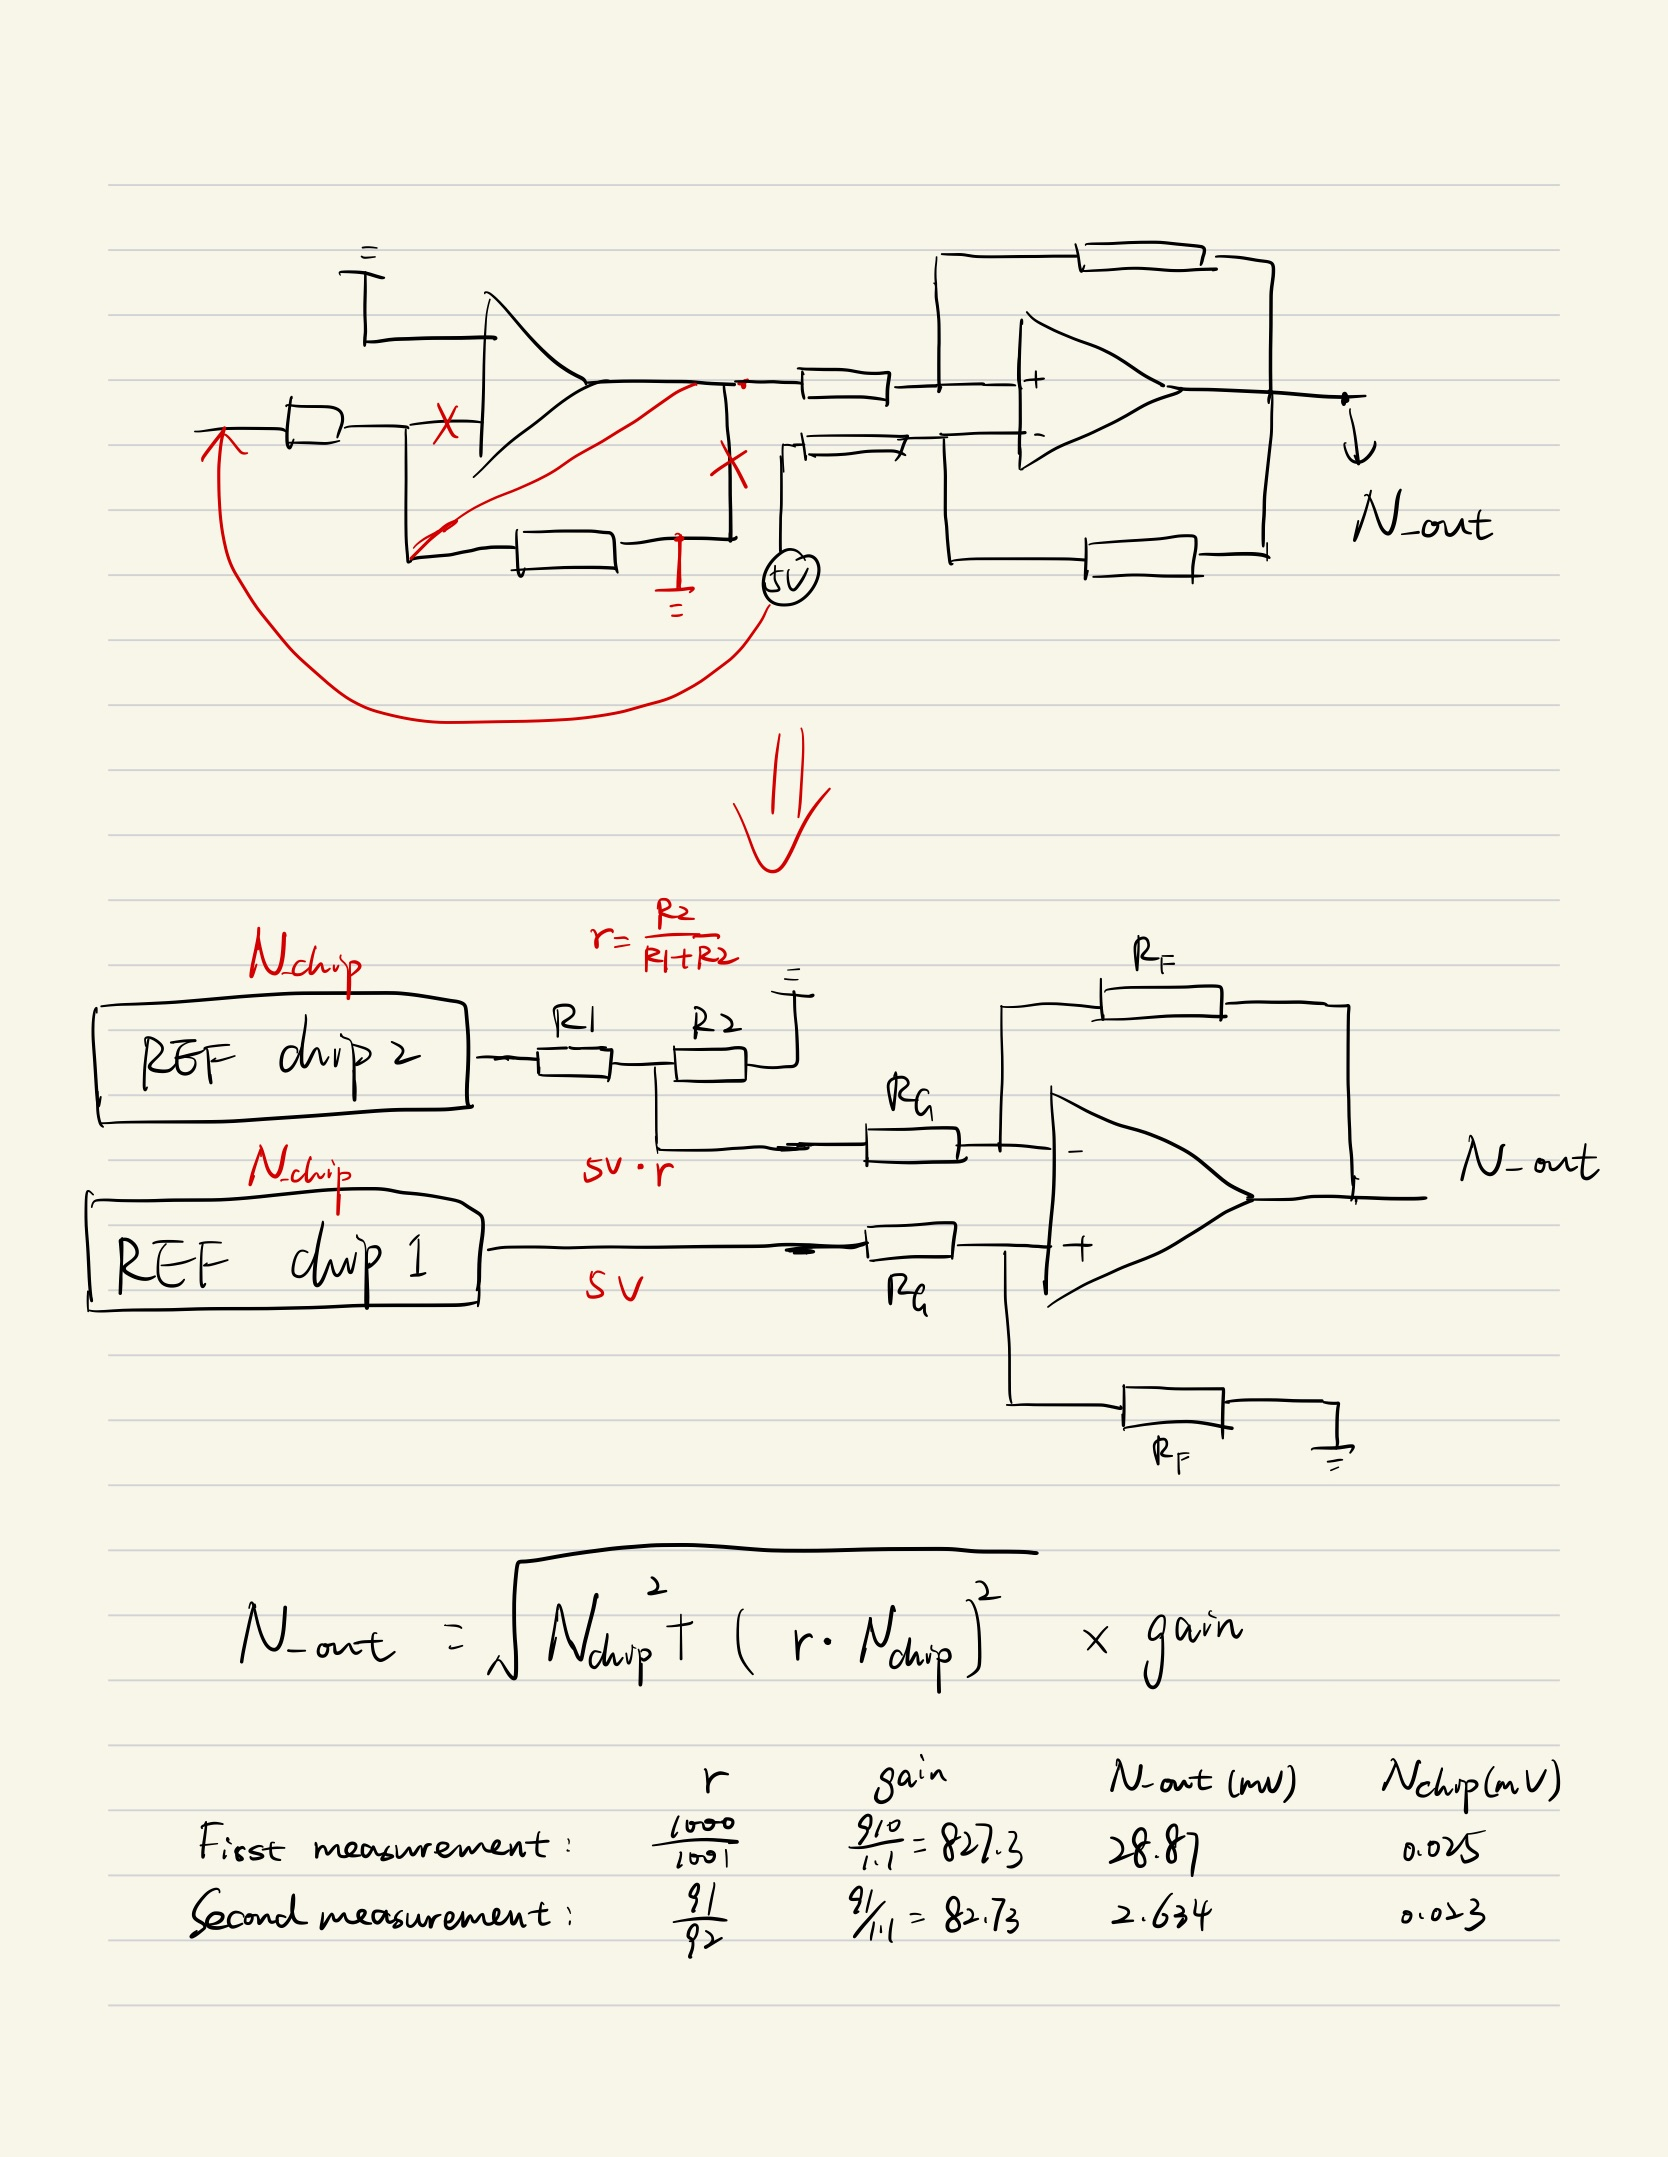 +
-
5V
N_out
r = R2 / (R1+R2)
N_chip
R_F
REF chip 2
R1
R2
R_G
-
5V · r
N_out
N_chip
REF chip 1
+
5V
R_G
R_F
N_out = √(N_chip² + (r · N_chip)²) × gain
r gain N_out (mV) N_chip (mV)
First measurement: 1000/1001 910/1.1 = 827.3 28.87 0.025
Second measurement: 91/92 91/1.1 = 82.73 2.634 0.023